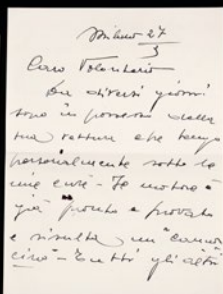 Milano 27
3
Caro Volontario
Da diversi giorni
sono in possesso della
tua vettura che tengo
personalmente sotto le
mie cure - Il motore è
già pronto e provato
e risulta un "canon
cino" - Tutti gli altri